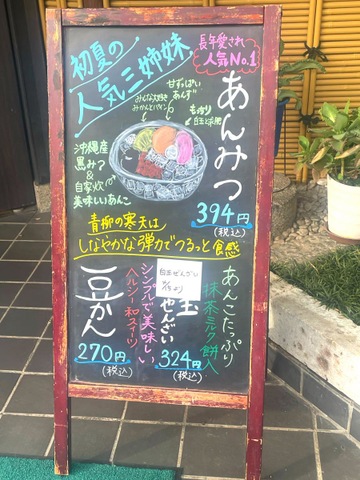 初夏の
人気三姉妹
長年愛され
人気No.1
あんみつ
394円
(税込)
甘ずっぱい
あんず
みんな大好き
みかんとパイン
もっちり
白玉と求肥
沖縄産
黒みつ
&
自家炊
美味しいあんこ
青柳の寒天は
しなやかな弾力でつるっと食感
豆かん
270円
(税込)
シンプルで美味しい
ヘルシー和スイーツ
白玉ぜんざい
玉
ぜんざい
324円
(税込)
あんこたっぷり
抹茶ミルク餅入